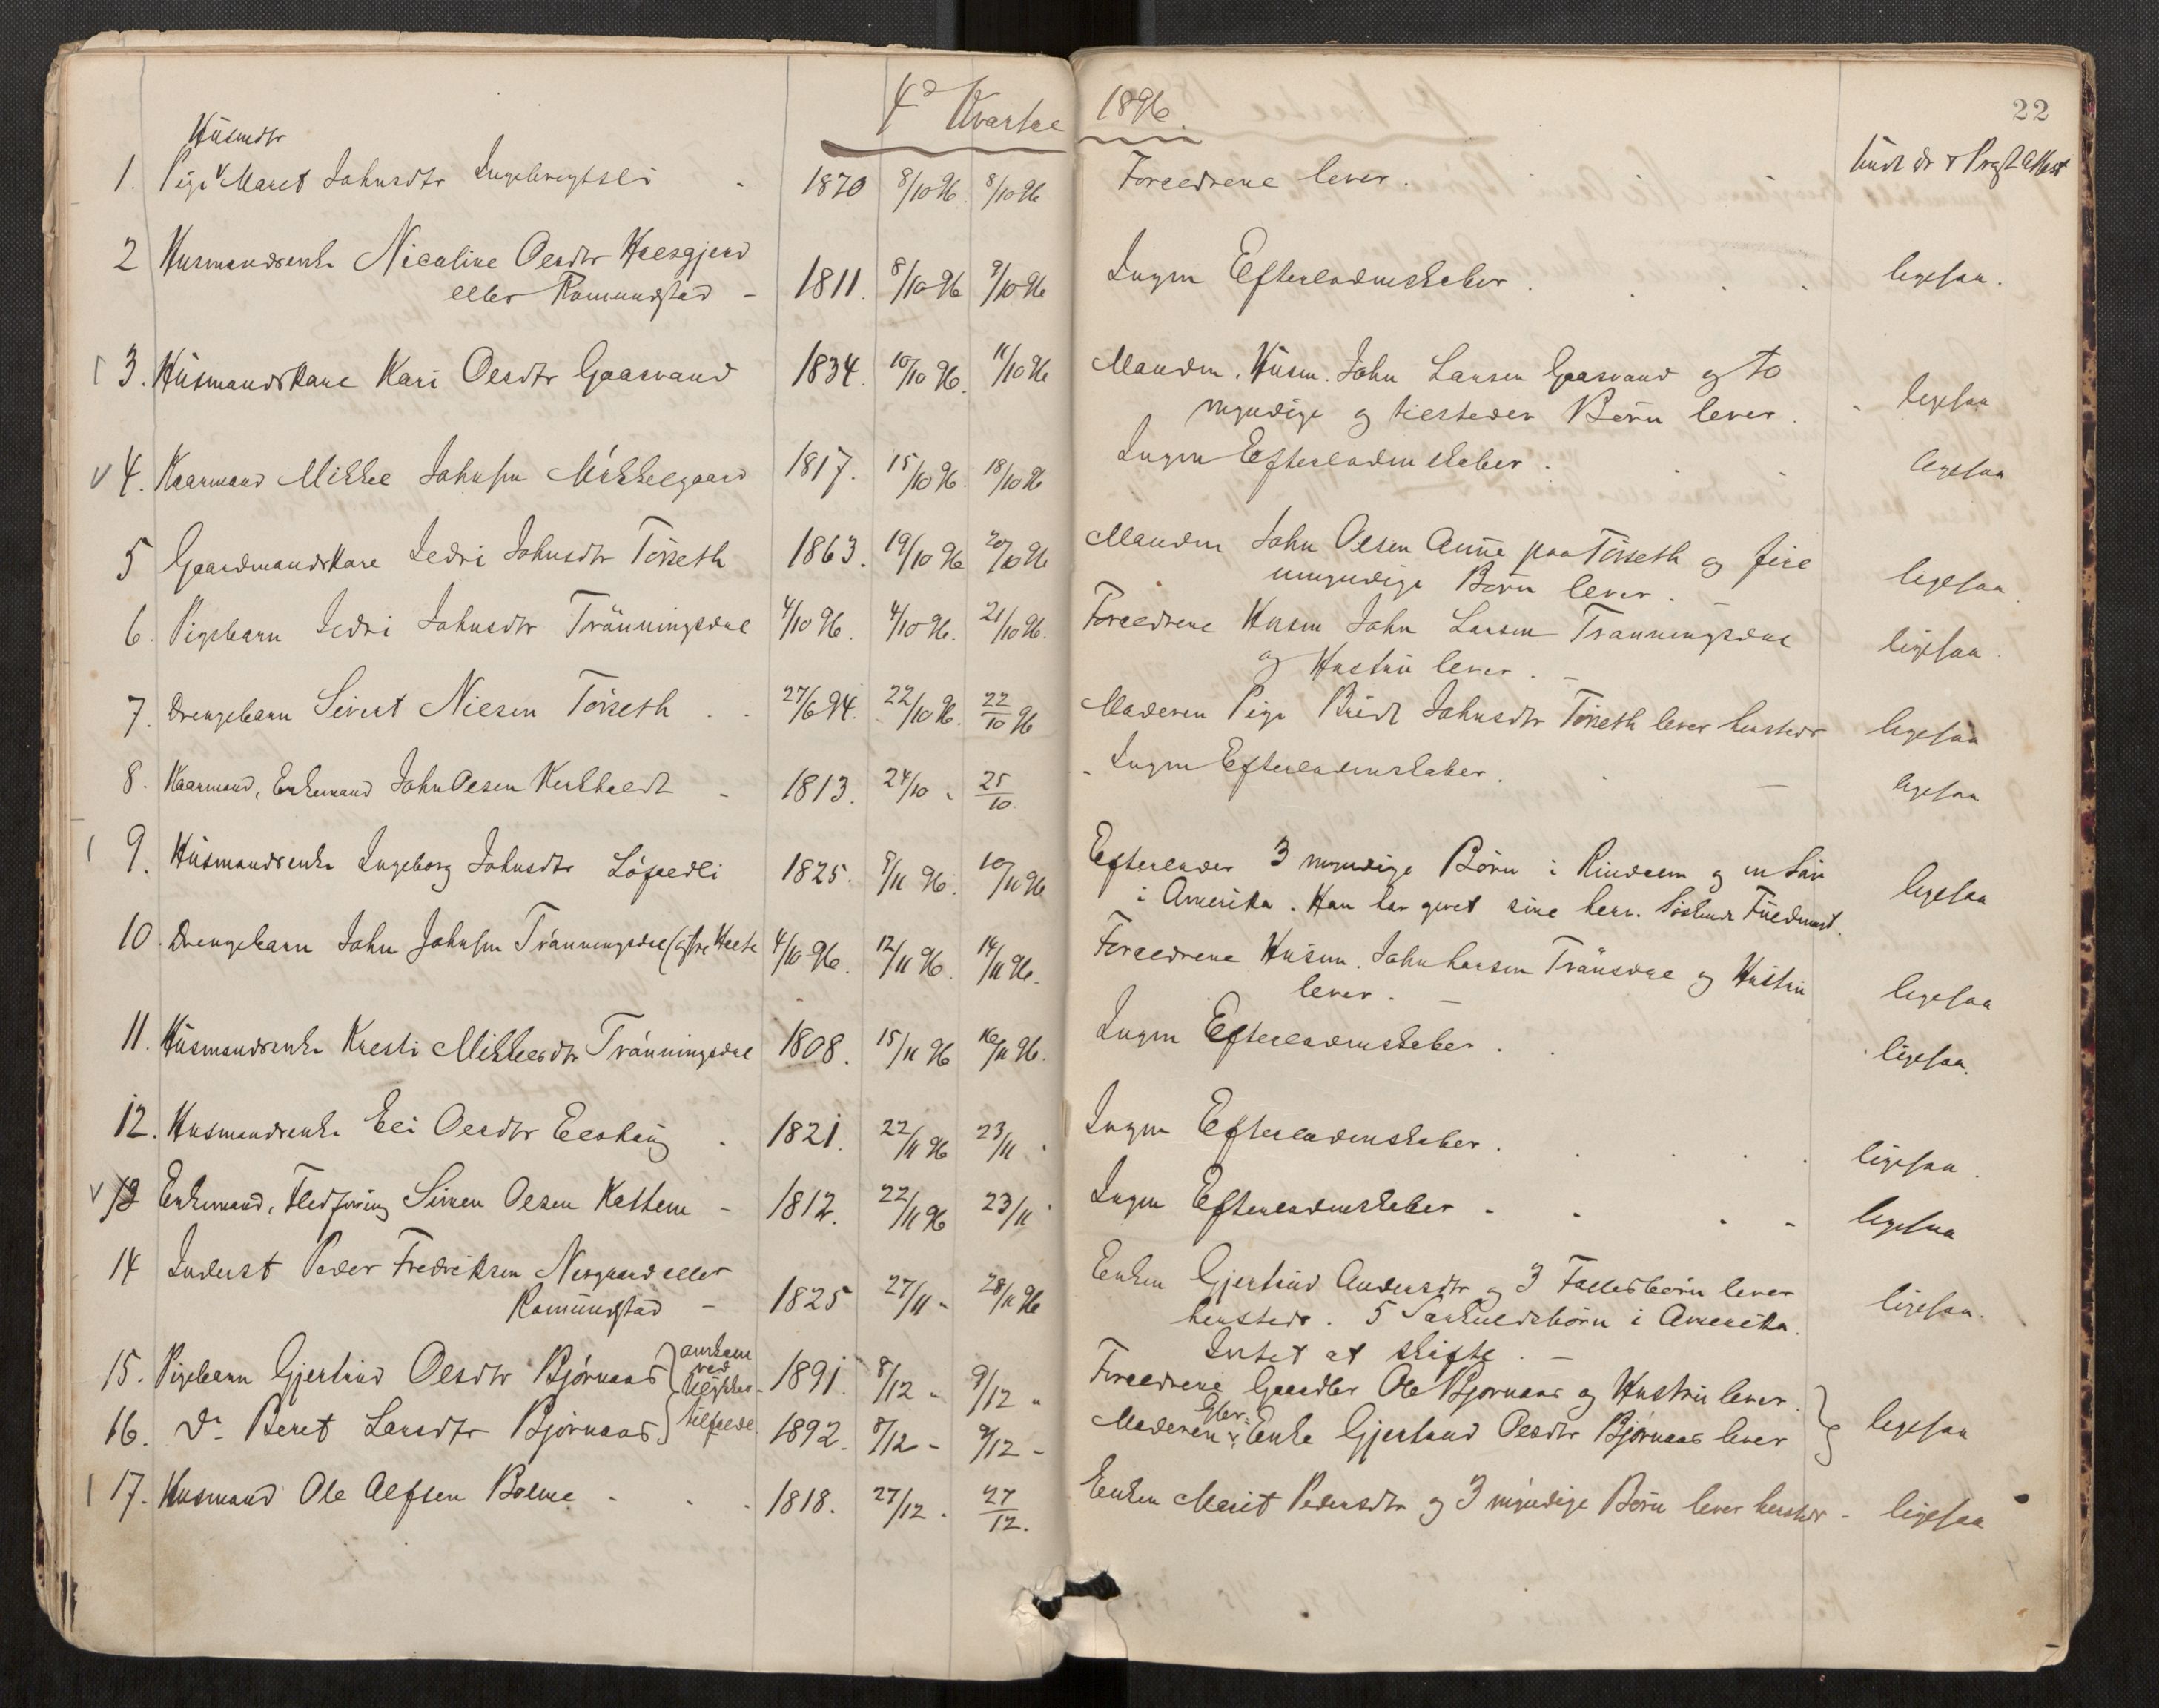 4de Kvartal 1896.
22
Husmdtr
1. Pige Marit Johnsdtr Ingebrigtsli - 1870 8/10 96. 8/10 96 Forældrene lever.
2 Husmandsenke Nicoline Olsdtr Halsgjerd
eller Romundstad - 1811. 8/10 96 9/10 96 Ingen Efterladenskaber. ligesaa.
3. Husmandskone Kari Olsdtr Gaasvand 1834. 10/10 96. 11/10 96 Manden, Husm. John Larsen Gaasvand og to
myndige og tilsteder Børn lever. ligesaa
4. Kaarmand Mikkel Johnsen Mikkelgaard 1817. 15/10 96. 18/10 96 Ingen Efterladenskaber. ligesaa
5 Gaardmandskone Sedri Johnsdtr Tørseth 1863. 19/10 96 20/10 96 Manden John Olsen Aune paa Tørseth og fire
umyndige Børn lever. - ligesaa
6. Pigebarn Sedri Johnsdtr Trønningsdal 4/10 96. 4/10 96. 21/10 96. Forældrene Husm John Larsen Trønningsdal
og Hustru lever. - ligesaa.
7. Drengebarn Sivert Nilsen Tørseth . . 27/6 94. 22/10 96. 22/10 96 Moderen Pige Brit Johnsdtr Tørseth lever hersteds ligesaa
8. Kaarmand, Enkemand John Olsen Kirkholt - 1813. 24/10 " 25/10. Ingen Efterladenskaber. ligesaa
9. Husmandsenke Ingeborg Johnsdtr Løfaldli 1825. 9/11 96. 10/11 96 Efterlader 3 myndige Børn i Rindalen og en Søn
i Amerika. Han har givet sine herv. Søskende Fuldmagt. ligesaa
10. Drengebarn John Johnsen Trønningsdal 4/10 96. 12/11 96. 14/11 96. Forældrene Husmn. John Larsen Trønsdal og Hustru
lever. - ligesaa
11. Husmandsenke Kresti Mikkelsdtr Trønningsdal 1808. 15/11 96 16/11 96. Ingen Efterladenskaber. ligesaa.
12. Husmandsenke Eli Olsdtr Elshaug . 1821. 22/11 96 23/11 " Ingen Efterladenskaber. ligesaa.
13 Enkemand, Fledføring Simen Olsen Kattem - 1812. 22/11 96 23/11 " Ingen Efterladenskaber - ligesaa
14 Inderst Peder Fredriksen Nesgaard eller
Romundstad - 1825 27/11 - 28/11 96 Enken Gjertrud Andersdtr og 3 Fællesbørn lever
hersteds. 5 Særkuldsbørn i Amerika.
Intet at skifte. - ligesaa.
15. Pigebarn Gjertrud Olsdtr Bjørnaas } omkom
ved
Ulykkes-
tilfælde 1891. 8/12 - 9/12 " Forældrene Gaardbr Ole Bjørnaas og Hustru lever.
16. Do Beret Larsdtr Bjørnaas } 1892. 8/12 - 9/12 - Moderen Enke Gjertrud Olsdtr Bjørnaas lever } ligesaa
17. Husmand Ole Alfsen Bolme - . . 1818. 27/12 . 27/12. Enken Marit Pedersdtr og 3 myndige Børn lever hersteds - ligesaa